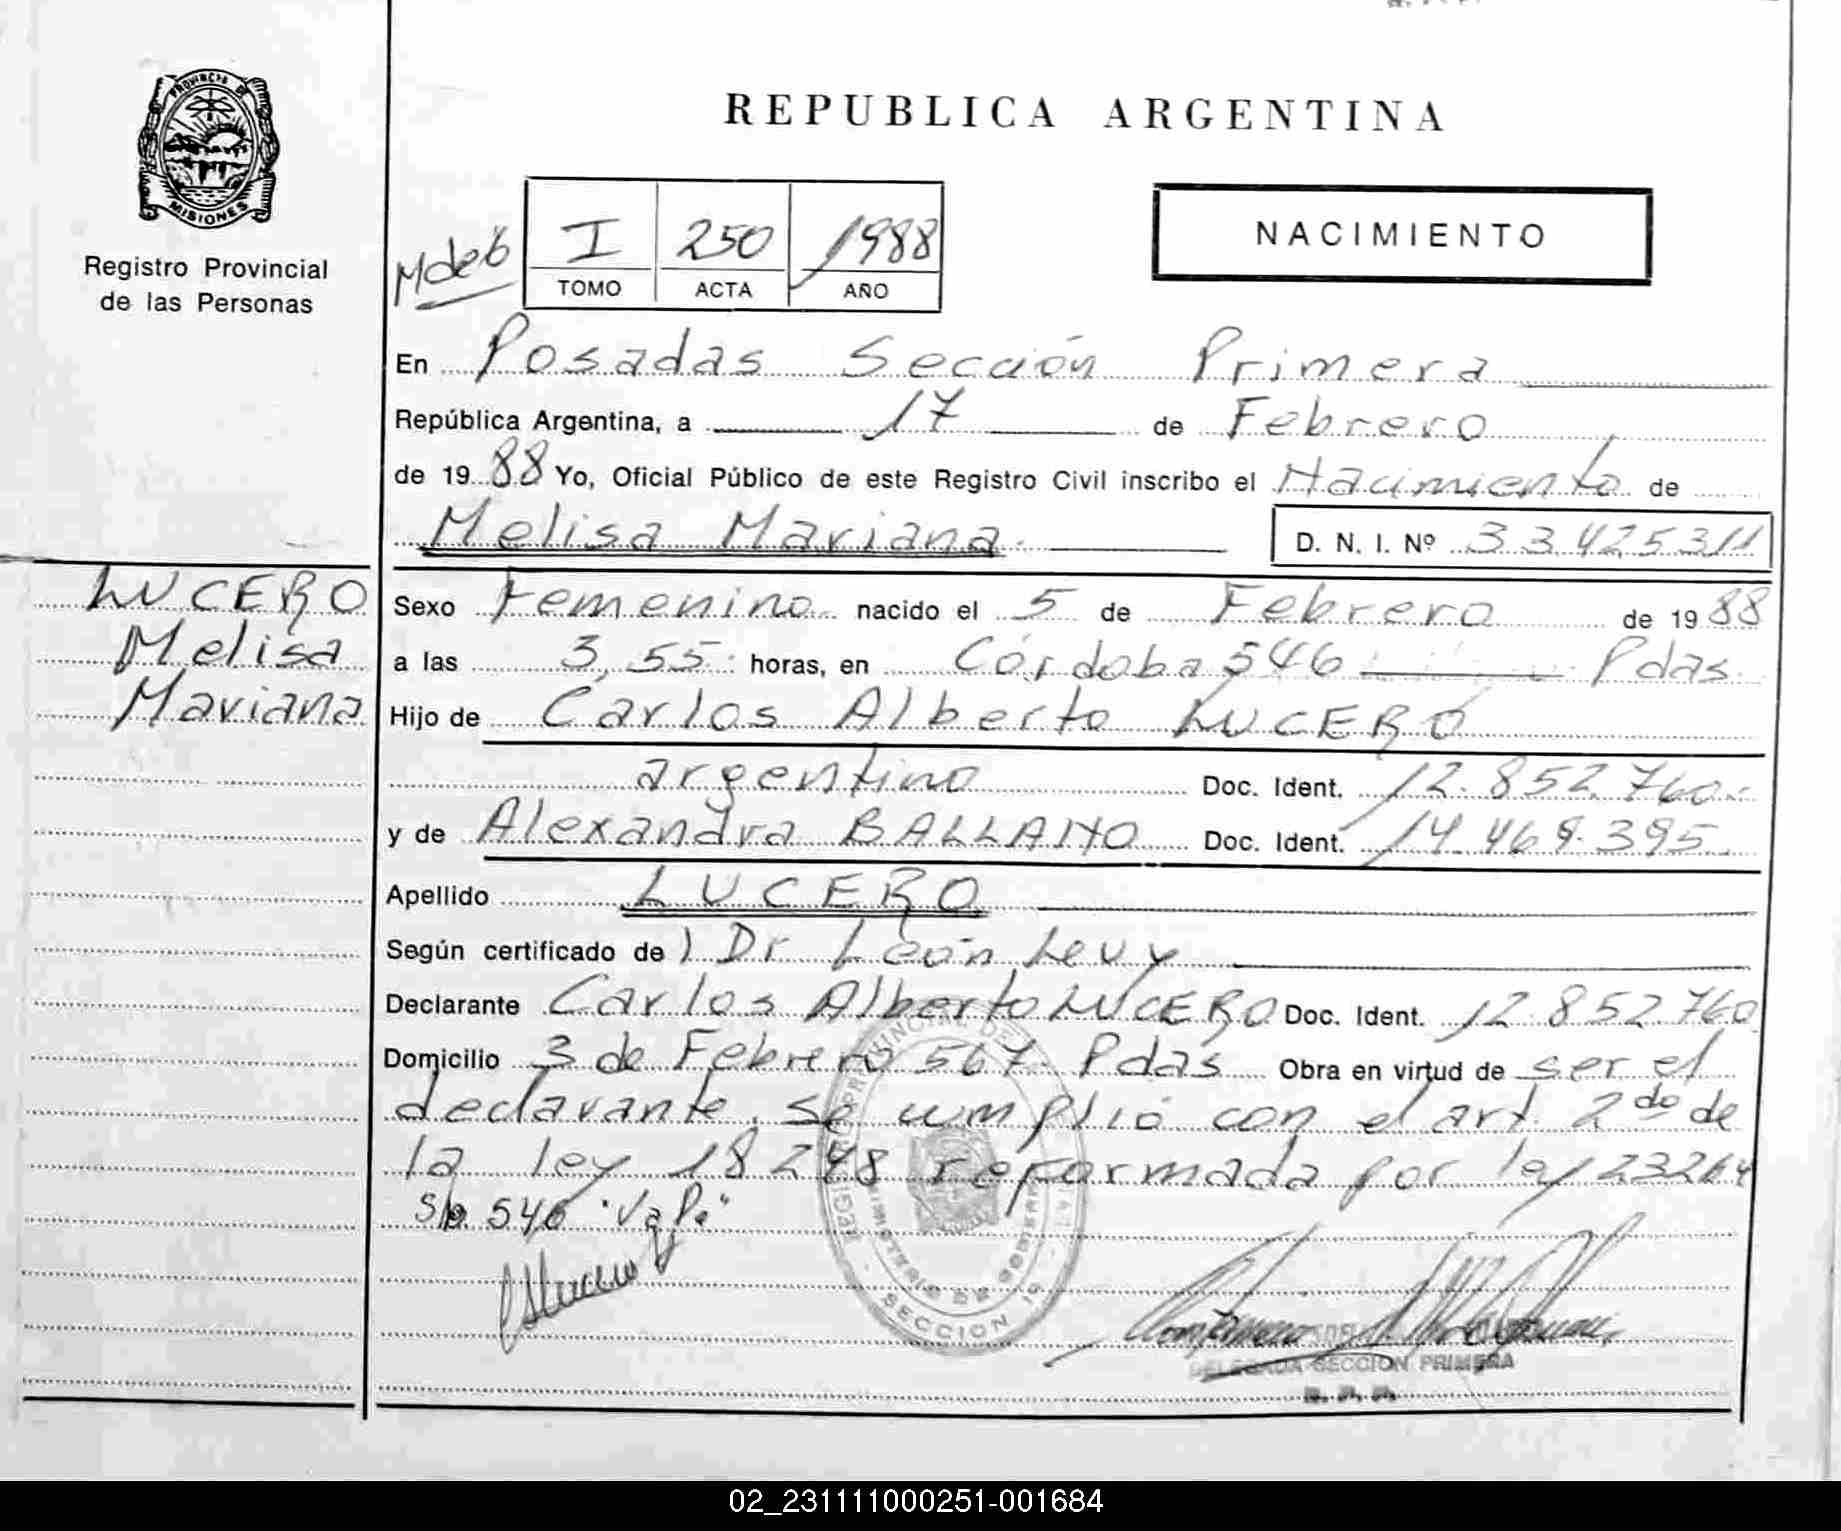 PROVINCIA DE
MISIONES
Registro Provincial
de las Personas
REPUBLICA ARGENTINA
NACIMIENTO
I 250 1988
TOMO ACTA AÑO
En Posadas Sección Primera
República Argentina, a 17 de Febrero
de 1988 Yo, Oficial Público de este Registro Civil inscribo el Nacimiento de
Melisa Mariana D. N. I. Nº 33425311
LUCERO
Melisa
Mariana
Sexo Femenino nacido el 5 de Febrero de 1988
a las 3,55 horas, en Córdoba 546 Pdas.
Hijo de Carlos Alberto LUCERO
argentino Doc. Ident. 12.852.760
y de Alexandra BALLANO Doc. Ident. 14.469.395
Apellido LUCERO
Según certificado de Dr León Levy
Declarante Carlos Alberto LUCERO Doc. Ident. 12.852.760
Domicilio 3 de Febrero 567 Pdas Obra en virtud de ser el
declarante. se cumplió con el art. 2do de
la ley 18248 reformada por ley 23264
S/p. 546 "Vale"
SECCION 1ª
DELEGADA SECCION PRIMERA
R. P. P.
02_231111000251-001684